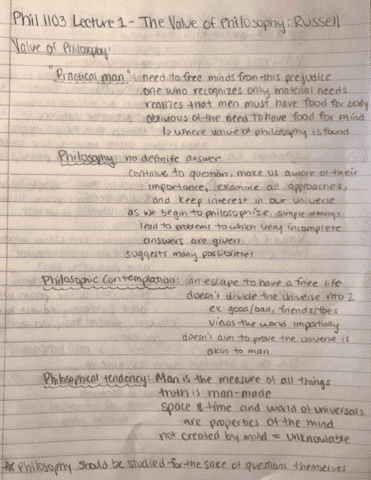 Phil 1103 Lecture 1 - The Value of Philosophy: Russell
Value of Philosophy:
"Practical man": need to free minds from this prejudice
one who recognizes only material needs
realizes that men must have food for body
oblivious of the need to have food for mind
↳ where value of philosophy is found
Philosophy: no definite answer
continue to question, make us aware of their
importance, examine all approaches,
and keep interest in our universe
as we begin to philosophize, simple things
lead to problems to which very incomplete
answers are given
suggests many possibilities
Philosophic Contemplation: an escape to have a free life
doesn't divide the universe into 2
ex good/bad, friends/foes
views the world impartially
doesn't aim to prove the universe is
akin to man
Philosophical tendency: Man is the measure of all things
truth is man-made
space & time and world of universals
are properties of the mind
not created by mind = unknowable
* Philosophy should be studied for the sake of questions themselves